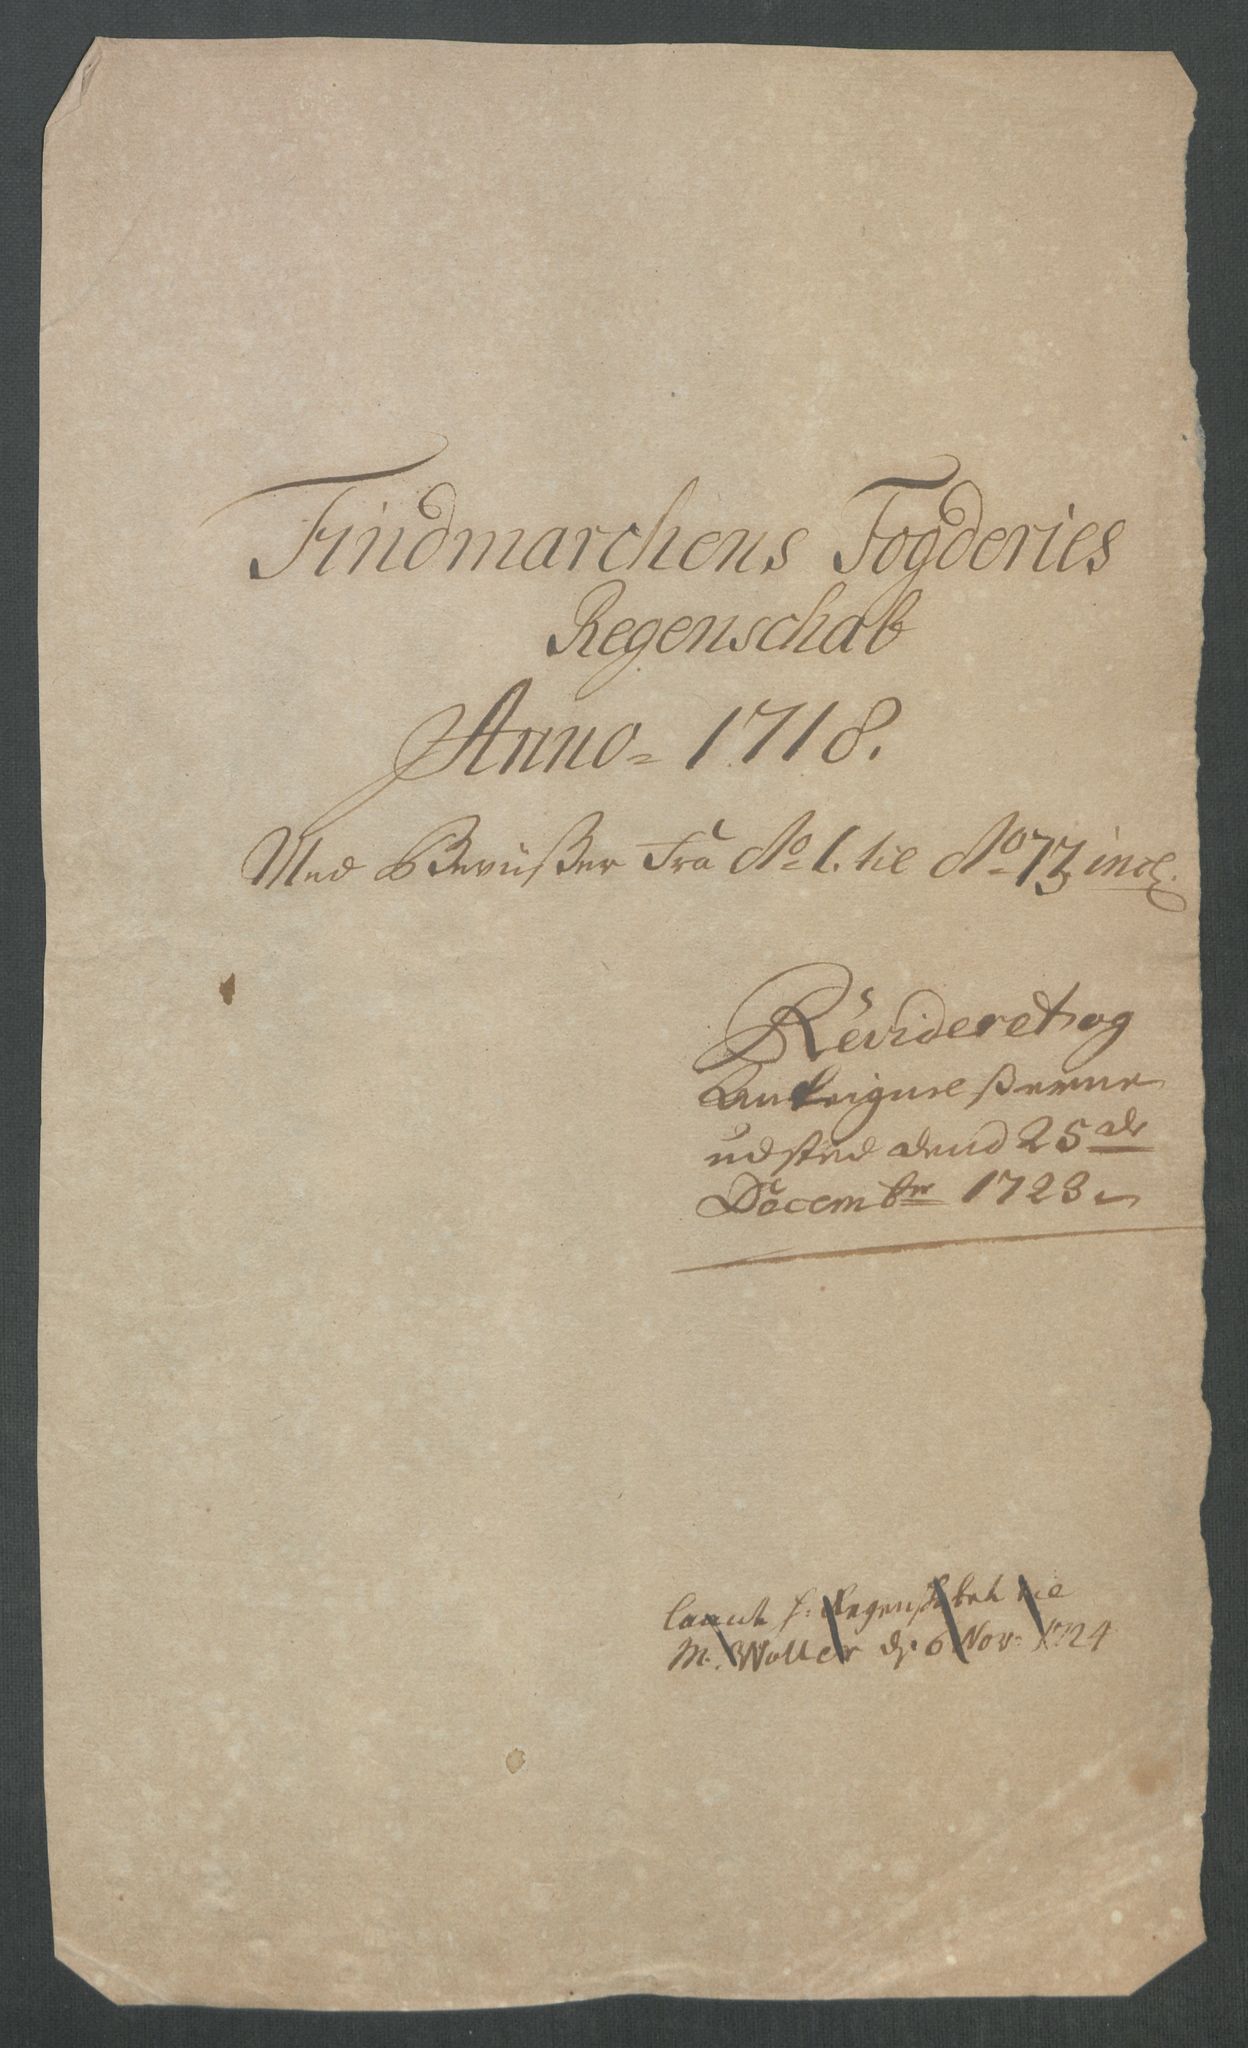 Findmarchens Fogderies
Regenschab
Anno= 1718.
Med Beviißer Fra No 1. til No 73 incl.
Revideret og
Anteignelßerne
udsted dend 25de
Decembr 1723
laant h: Regenskabet til
M. Woller d. 6 Nov: 1724